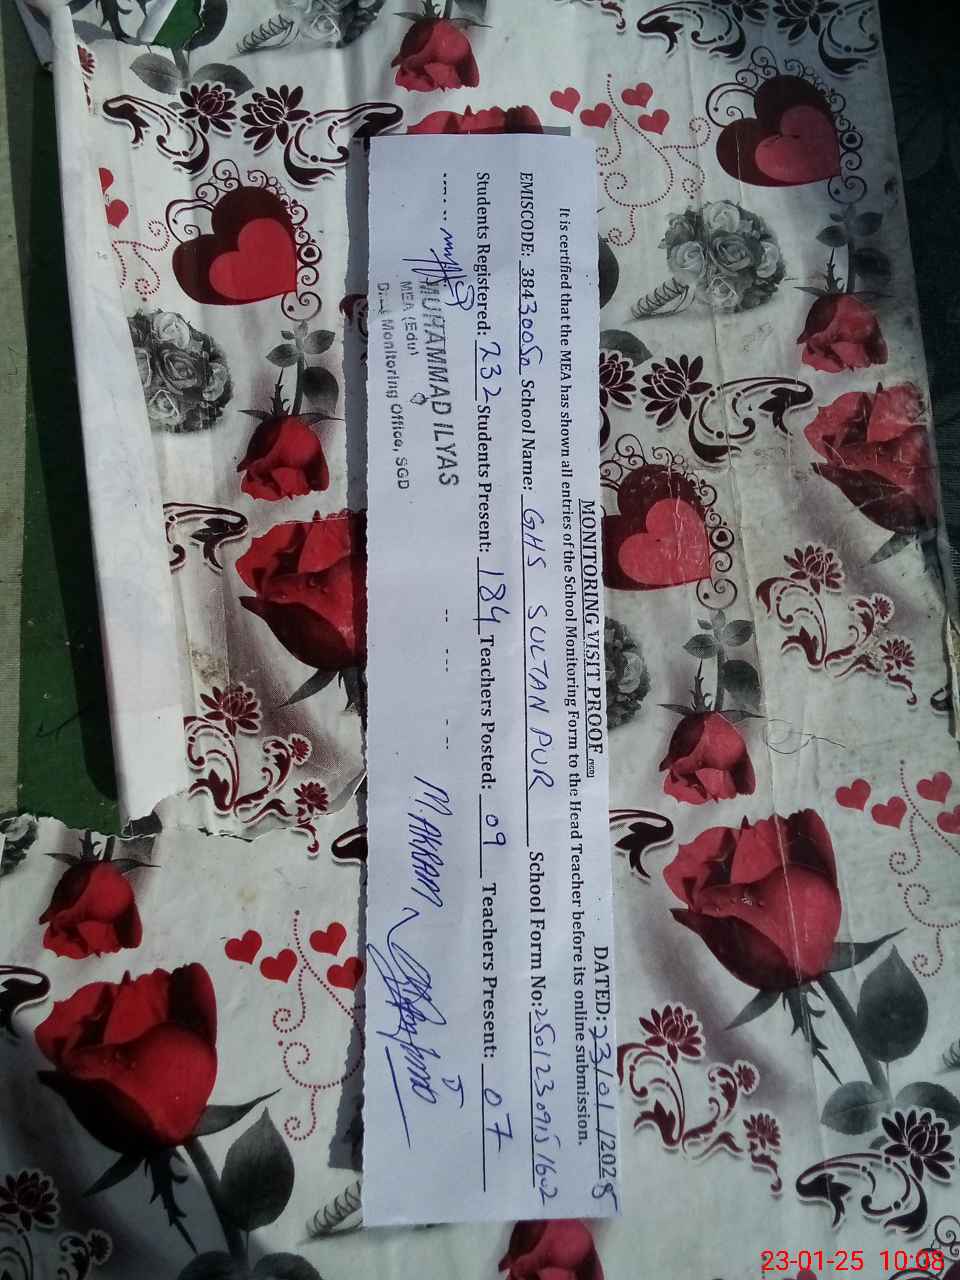 MONITORING VISIT PROOF (SGD) DATED: 23/01/2025
It is certified that the MEA has shown all entries of the School Monitoring Form to the Head Teacher before its online submission.
EMISCODE: 38430050 School Name: GHS SULTAN PUR School Form No: 25012309151602
Students Registered: 232 Students Present: 184 Teachers Posted: 09 Teachers Present: 07
MUHAMMAD ILYAS M. AKRAM
MEA (Edu)
Monitoring Office, SGD
23-01-25 10:08